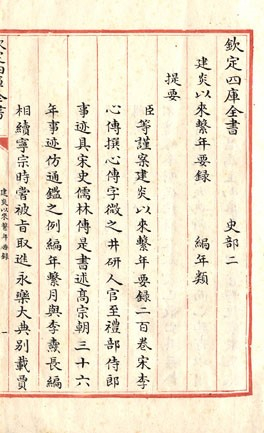 欽定四庫全書　史部二
建炎以來繫年要錄　編年類
提要
臣等謹案建炎以來繫年要錄二百卷宋李
心傳撰心傳字微之井研人官至禮部侍郎
事迹具宋史儒林傳是書述高宗朝三十六
年事迹仿通鑑之例編年繫月與李燾長編
相續寧宗時嘗被旨取進永樂大典別載賈
欽定四庫全書
建炎以來繫年要錄
一